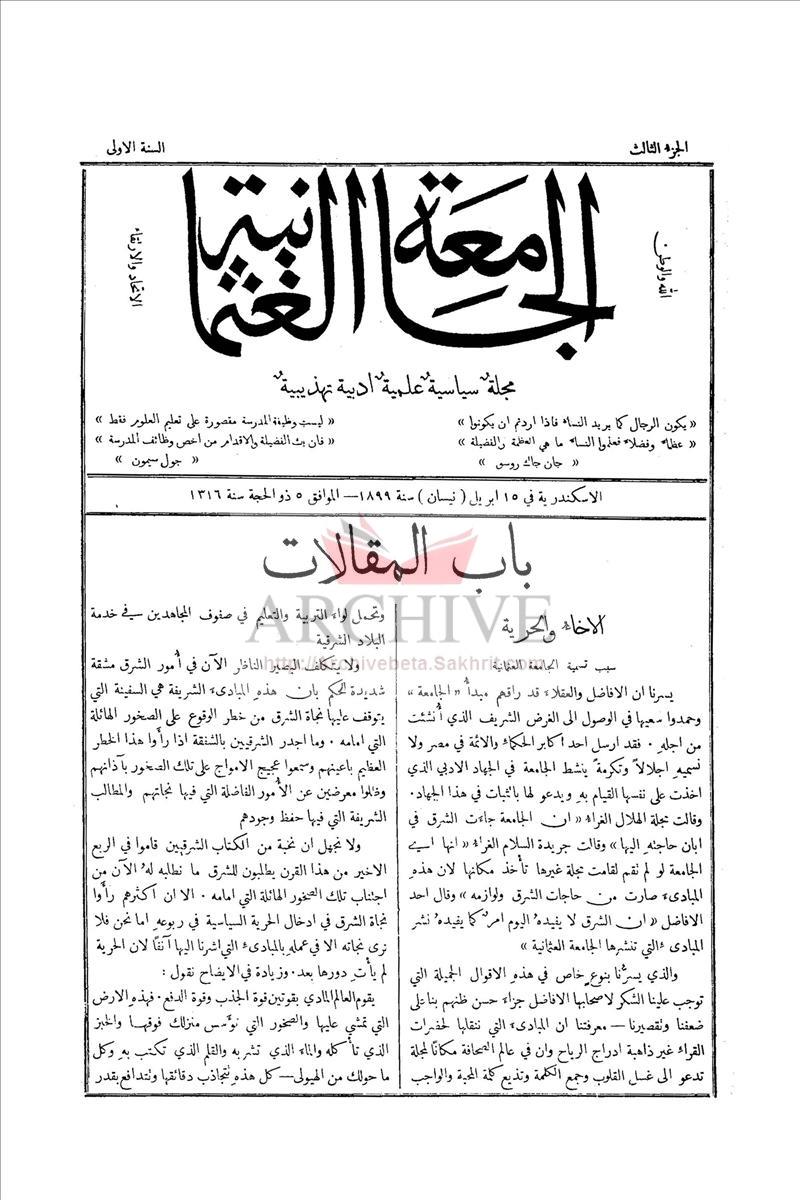 الجزء الثالث
السنة الاولى
الله والوطن
الجامعة العثمانية
الاتحاد والارتقاء
مجلة سياسية علمية ادبية تهذيبية
« يكون الرجال كما يريد النساء فاذا اردتم ان يكونوا »
« عظماء وفضلاء فعلموا النساء ما هي العظمة والفضيلة »
« جان جاك روسو »
« ليست وظيفة المدرسة مقصورة على تعليم العلوم فقط »
« فان بث الفضيلة والاقدام من اخص وظائف المدرسة »
« جول سيمون »
الاسكندرية في ١٥ ابريل ( نيسان ) سنة ١٨٩٩ — الموافق ٥ ذو الحجة سنة ١٣١٦
باب المقالات
ARCHIVE
http://Archivebeta.Sakhrit.com
الاخاء والحرية
سبب تسمية الجامعة العثمانية
يسرنا ان الافاضل والعقلاء قد راقهم مبدأ « الجامعة »
وحمدوا سعيها في الوصول الى الغرض الشريف الذي أُنشئت
من اجله ٠ فقد ارسل احد اكابر الحكماء والائمة في مصر ولا
نسميهِ اجلالاً وتكرمةً ينشط الجامعة في الجهاد الادبي الذي
اخذت على نفسها القيام به ويدعو لها بالثبات في هذا الجهاد.
وقالت مجلة الهلال الغراء « ان الجامعة جاءت الشرق في
ابان حاجته اليها » وقالت جريدة السلام الغراء « انها اي
الجامعة لو لم نقم لقامت مجلة غيرها تأخذ مكانها لان هذهِ
المبادىء صارت من حاجات الشرق ولوازمه » وقال احد
الافاضل « ان الشرق لا يفيدهُ اليوم امرٌ كما يفيدهُ نشر
المبادىء التي تنشرها الجامعة العثمانية »
والذي يسرُّنا بنوع خاص في هذهِ الاقوال الجميلة التي
توجب علينا الشكر لاصحابها الافاضل جزاء حسن ظنهم بنا على
ضعفنا وتقصيرنا — معرفتنا ان المبادىء التي ننقلها لحضرات
القراء غير ذاهبة ادراج الرياح وان في عالم الصحافة مكانًا لمجلة
تدعو الى غسل القلوب وجمع الكلمة وتذيع كلمة المحبة والواجب
وتحمل لواء التربية والتعليم في صفوف المجاهدين في خدمة
البلاد الشرقية
ولا يتكلف البصير الناظر الآن في أمور الشرق مشقة
شديدة للحكم بان هذهِ المبادىء الشريفة هي السفينة التي
يتوقف عليها نجاة الشرق من خطر الوقوع على الصخور الهائلة
التي امامه ٠ وما اجدر الشرقيين بالشفقة اذا رأوا هذا الخطر
العظيم باعينهم وسمعوا عجيج الامواج على تلك الصخور بآذانهم
وظلوا معرضين عن الأمور الفاضلة التي فيها نجاتهم والمطالب
الشريفة التي فيها حفظ وجودهم
ولا نجهل ان نخبة من الكتاب الشرقيين قاموا في الربع
الاخير من هذا القرن يطلبون للشرق ما نطلبه لهُ الآن من
اجتناب تلك الصخور الهائلة التي امامه ٠ الا ان اكثرهم رأوا
نجاة الشرق في ادخال الحرية السياسية في ربوعهِ اما نحن فلا
نرى نجاته الا في عملهِ بالمبادىء التي اشرنا اليها آنفًا لان الحرية
لم يأتِ دورها بعد ٠ وزيادة في الايضاح نقول :
يقوم العالم المادي بقوتين قوة الجذب وقوة الدفع ٠ فهذهِ الارض
التي تمشي عليها والصخور التي تؤسس منزلك فوقها والخبز
الذي تأكله والماء الذي تشربه والقلم الذي تكتب بهِ وكل
ما حولك من الهيولى — كل هذهِ تتجاذب دقائقها وتتدافع بقدر